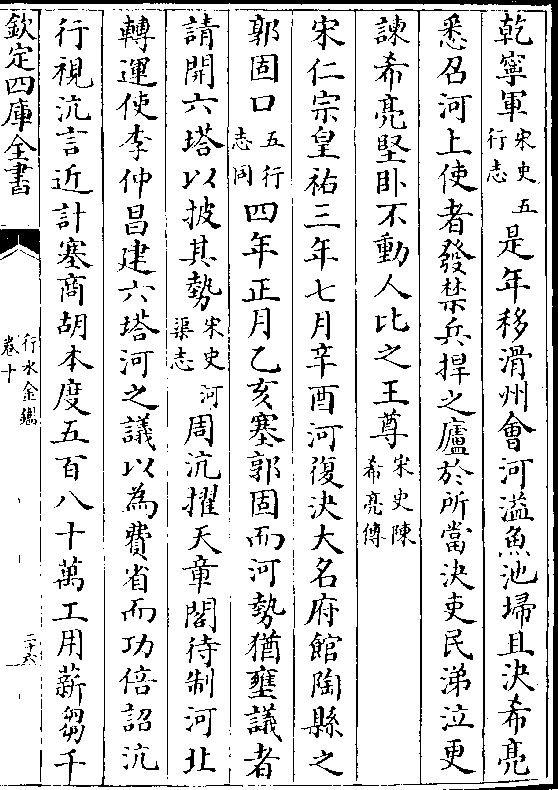 乾寧軍宋史五行志是年移滑州會河溢魚池埽且決希亮
悉召河上使者發禁兵捍之廬於所當決吏民涕泣更
諫希亮堅卧不動人比之王尊宋史陳希亮傳
宋仁宗皇祐三年七月辛酉河復決大名府館陶縣之
郭固口五行志同四年正月乙亥塞郭固而河勢猶壅議者
請開六塔以披其勢宋史河渠志周沆擢天章閣待制河北
轉運使李仲昌建六塔河之議以為費省而功倍詔沆
行視沆言近計塞商胡本度五百八十萬工用薪芻千
欽定四庫全書
行水金鑑
卷十
二十六